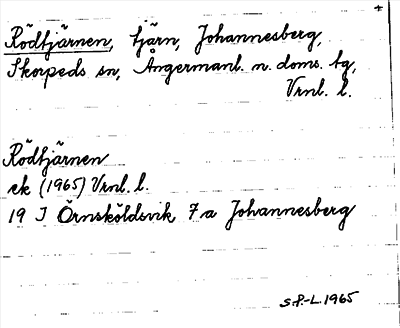 Rödtjärnen, tjärn, Johannesberg,
Skorpeds sn, Ångermanl. n. doms. tg,
Vrnl. l.
Rödtjärnen
ek (1965) Vrnl. l.
19 I Örnsköldsvik 7 a Johannesberg
S.P.-L. 1965